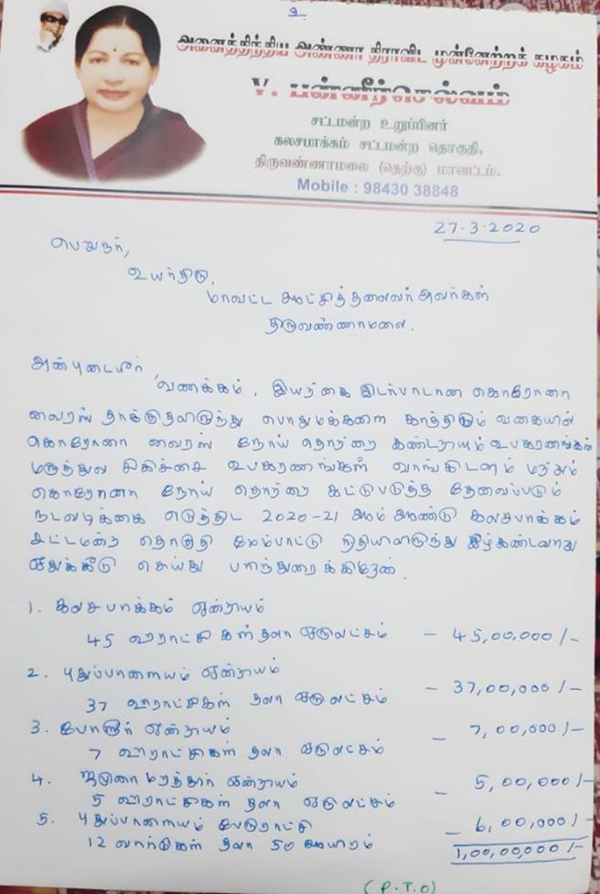 2
அனைத்திந்திய அண்ணா திராவிட முன்னேற்றக் கழகம்
V. பன்னீர்செல்வம்
சட்டமன்ற உறுப்பினர்
கலசபாக்கம் சட்டமன்ற தொகுதி,
திருவண்ணாமலை (தெற்கு) மாவட்டம்.
Mobile : 98430 38848
27.3.2020
பெறுநர்,
உயர்திரு,
மாவட்ட ஆட்சித்தலைவர் அவர்கள்
திருவண்ணாமலை.
அன்புடையீர்
வணக்கம். இயற்கை இடர்பாடான கொரோனா
வைரஸ் தாக்குதலிலிருந்து பொதுமக்களை காத்திடும் வகையில்
கொரோனா வைரஸ் நோய் தொற்றை கண்டறியும் உபகரணங்கள்
மருத்துவ சிகிச்சை உபகரணங்கள் வாங்கிடவும் மற்றும்
கொரோனா நோய் தொற்றை கட்டுபடுத்த தேவைப்படும்
நடவடிக்கை எடுத்திட 2020-21 ஆம் ஆண்டு கலசபாக்கம்
சட்டமன்ற தொகுதி மேம்பாட்டு நிதியிலிருந்து கீழ்கண்டவாறு
ஒதுக்கீடு செய்து பரிந்துரைக்கிறேன்.
1. கலசபாக்கம் ஒன்றியம்
45 ஊராட்சிகள் தலா ஒருலட்சம் - 45,00,000/-
2. புதுப்பாளையம் ஒன்றியம்
37 ஊராட்சிகள் தலா ஒரு லட்சம் - 37,00,000/-
3. போளூர் ஒன்றியம்
7 ஊராட்சிகள் தலா ஒருலட்சம் - 7,00,000/-
4. ஜமுனாமரத்தூர் ஒன்றியம்
5 ஊராட்சிகள் தலா ஒருலட்சம் - 5,00,000/-
5. புதுப்பாளையம் பேரூராட்சி
12 வார்டுகள் தலா 50 ஆயிரம் - 6,00,000/-
1,00,00,000/-
(P.T.O)